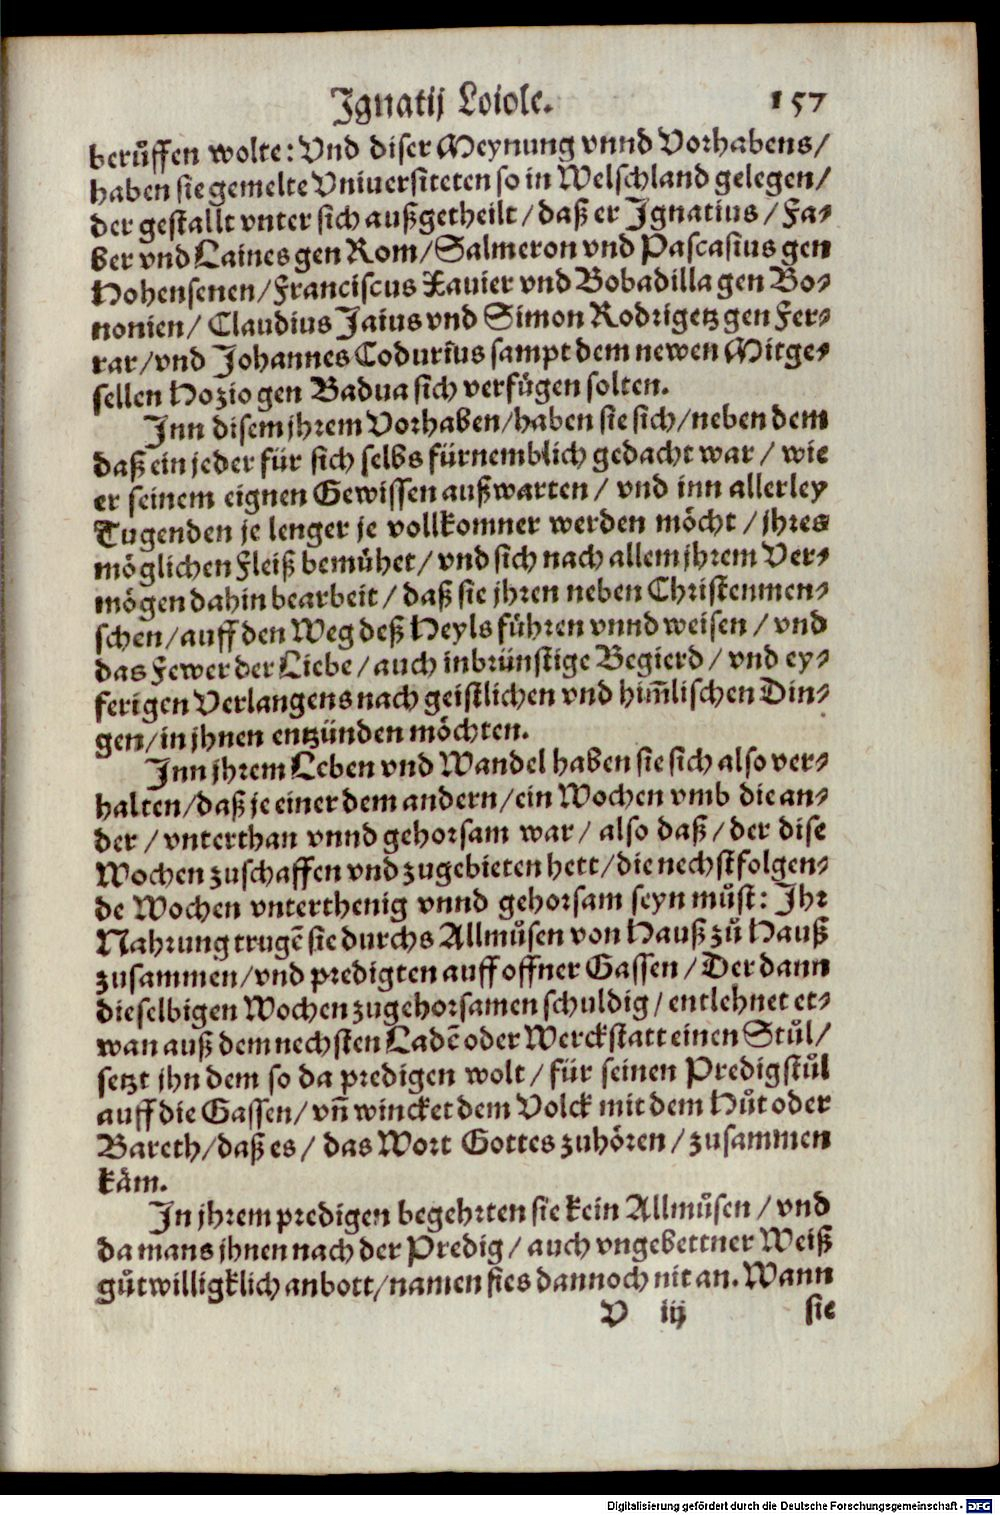 Ignatij Loiole. 157
berůffen wolte: Vnd diser Meynung vnnd Vorhabens/
haben sie gemelte Vniuersiteten so in Welschland gelegen/
der gestallt vnter sich außgetheilt/ daß er Ignatius/ Fa-
ber vnd Laines gen Rom/ Salmeron vnd Pascasius gen
Hohensenen/ Franciscus Xauier vnd Bobadilla gen Bo-
nonien/ Claudius Jaius vnd Simon Rodrigetz gen Fer-
rar/ vnd Johannes Codurius sampt dem newen Mitge-
sellen Hozio gen Badua sich verfügen solten.
Inn disem jhrem Vorhaben/ haben sie sich/ neben dem
daß ein jeder für sich selbs fürnemblich gedacht war/ wie
er seinem eignen Gewissen außwarten/ vnd inn allerley
Tugenden je lenger je vollkomner werden möcht/ jhres
möglichen Fleiß bemühet/ vnd sich nach allem jhrem Ver-
mögen dahin bearbeit/ daß sie jhren neben Christenmen-
schen/ auff den Weg deß Heyls führen vnnd weisen/ vnd
das Fewer der Liebe/ auch inbrünstige Begierd/ vnd ey-
ferigen Verlangens nach geistlichen vnd him̃lischen Din-
gen/ in jhnen entzünden möchten.
Inn jhrem Leben vnd Wandel haben sie sich also ver-
halten/ daß je einer dem andern/ ein Wochen vmb die an-
der/ vnterthan vnnd gehorsam war/ also daß/ der dise
Wochen zuschaffen vnd zugebieten hett/ die nechstfolgen-
de Wochen vnterthenig vnnd gehorsam seyn můst: Ihr
Nahrung trugẽ sie durchs Allmůsen von Hauß zů Hauß
zusammen/ vnd predigten auff offner Gassen/ Der dann
dieselbigen Wochen zugehorsamen schuldig/ entlehnet et-
wan auß dem nechsten Ladẽ oder Werckstatt einen Stůl/
setzt jhn dem so da predigen wolt/ für seinen Predigstůl
auff die Gassen/ vñ wincket dem Volck mit dem Hůt oder
Bareth/ daß es/ das Wort Gottes zuhören/ zusammen
käm.
In jhrem predigen begehrten sie kein Allmůsen/ vnd
da mans jhnen nach der Predig/ auch vngebettner Weiß
gůtwilligklich anbott/ namen sies dannoch nit an. Wann
V iij sie
Digitalisierung gefördert durch die Deutsche Forschungsgemeinschaft - DFG